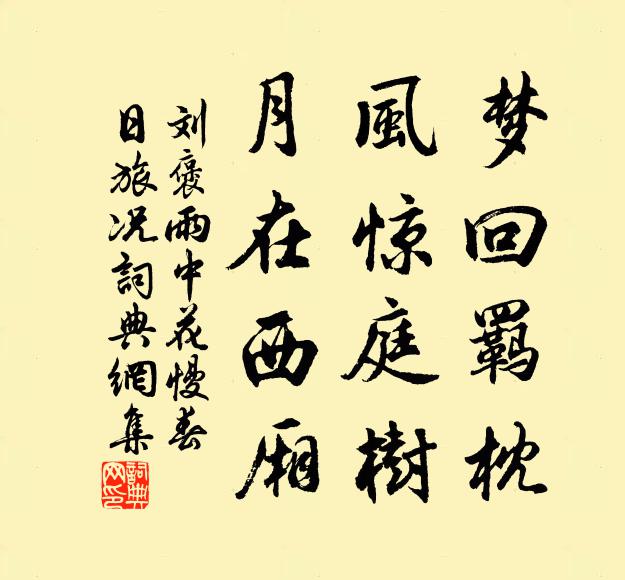 梦回羁枕
風惊庭樹
月在西厢
刘褒雨中花慢春
日旅况詞典網集
詞典网印